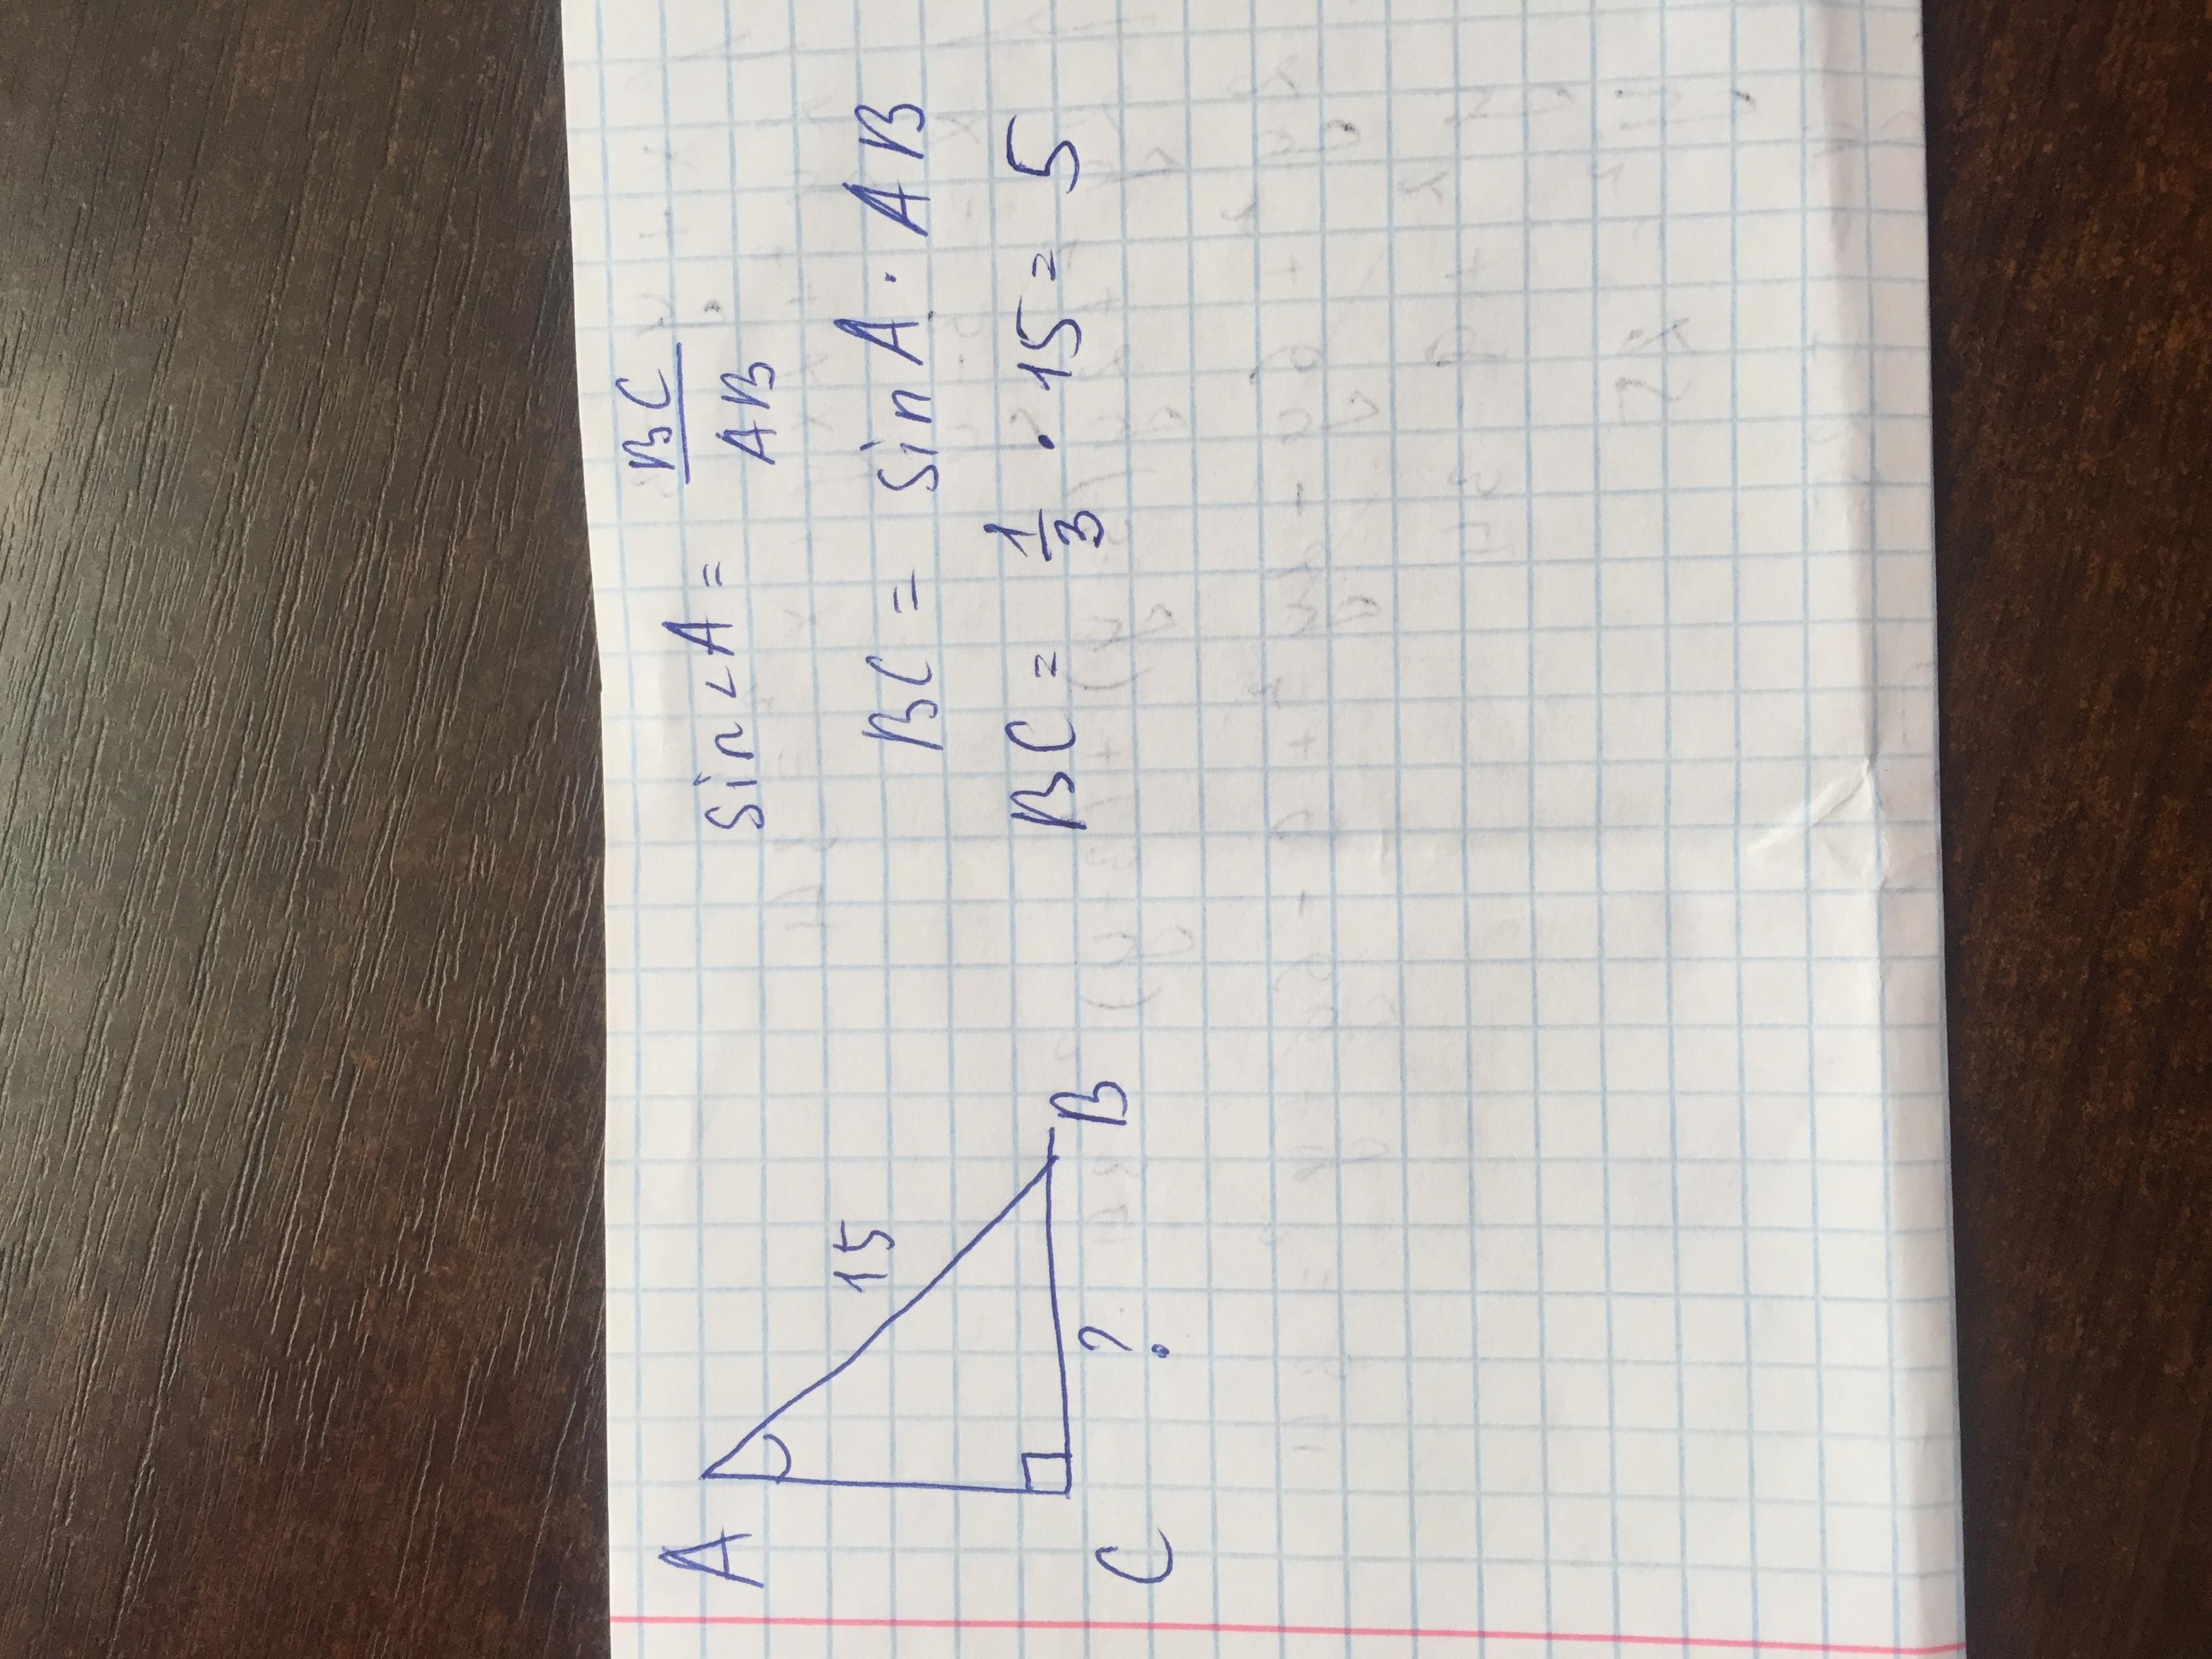 A
15
C
?
B
sin∠A = BC/AB
BC = sin A · AB
BC = 1/3 · 15 = 5